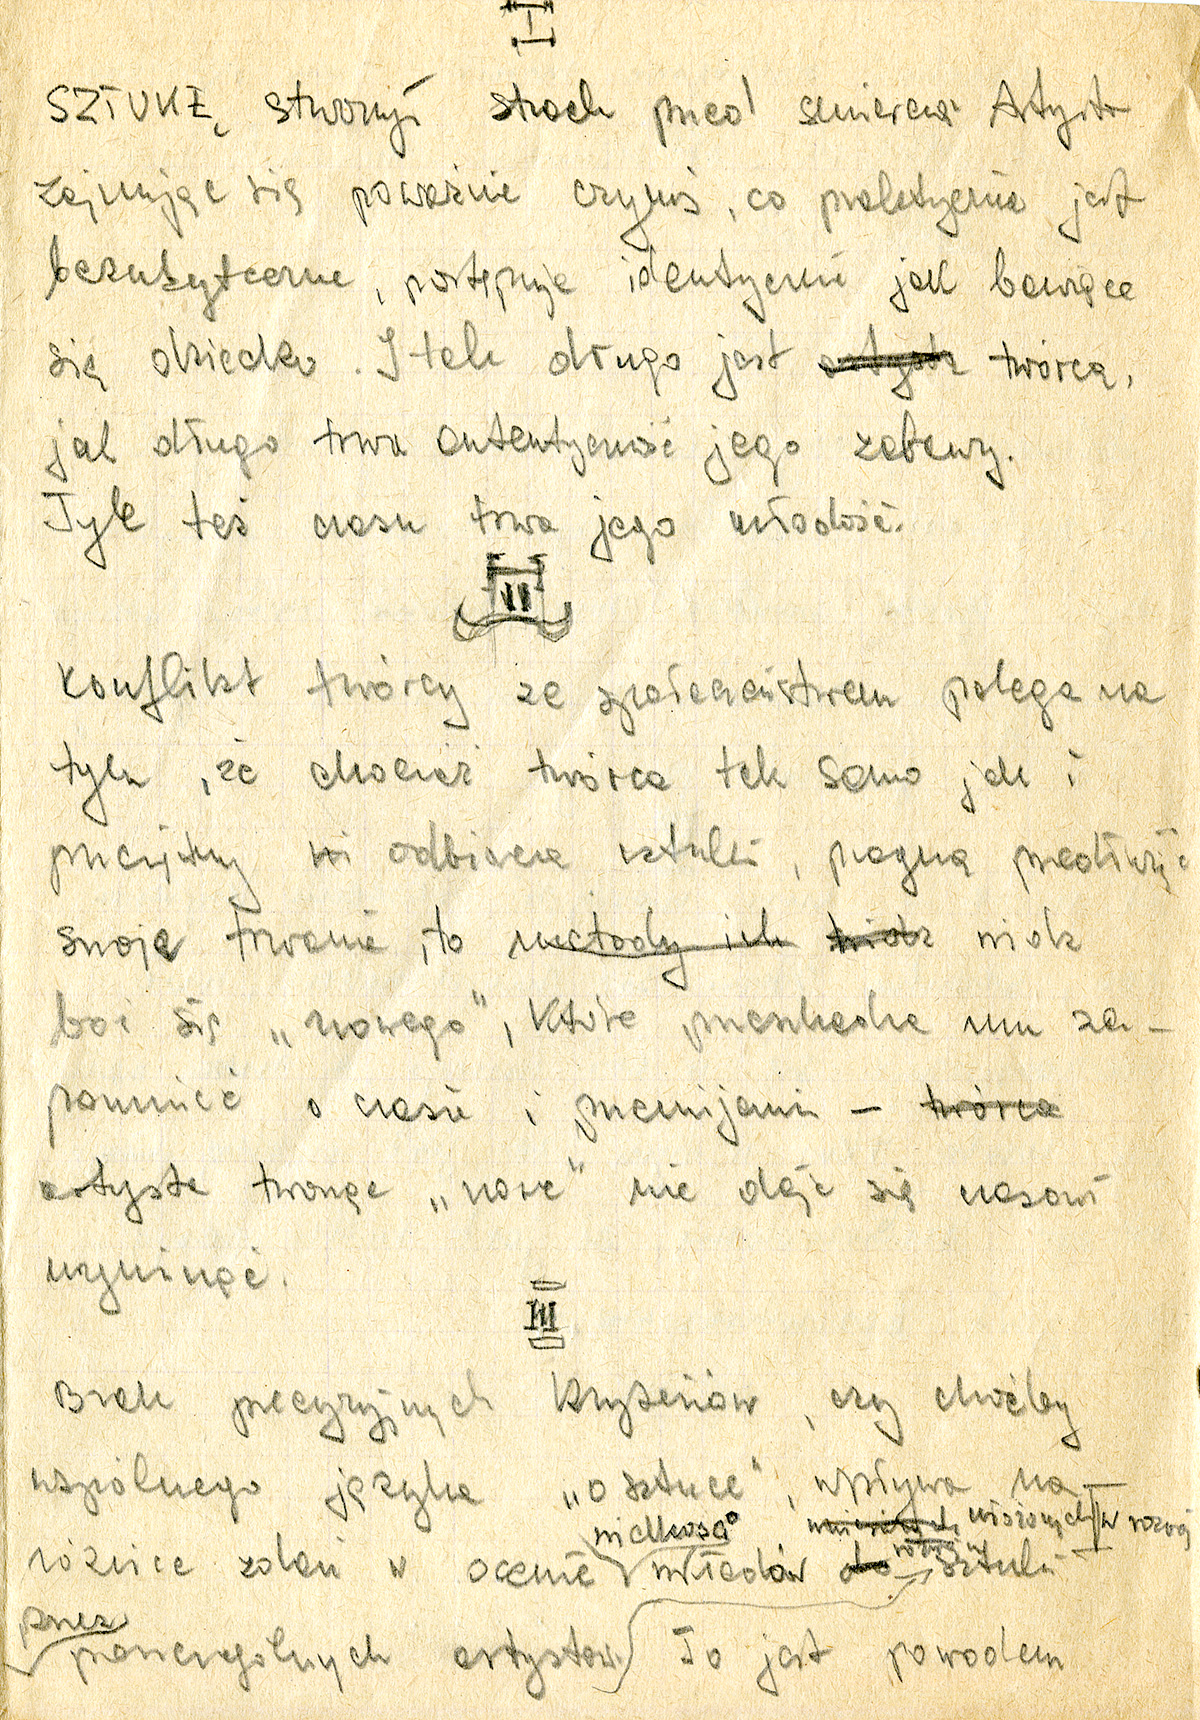 I
SZTUKĘ stworzył strach przed śmiercią Artysta
zajmując się poważnie czymś, co praktycznie jest
bezużyteczne, postępuje identycznie jak bawiące
się dziecko. I tak długo jest artystą twórcą,
jak długo trwa autentyczność jego zabawy.
Tyle też czasu trwa jego młodość.
II
Konflikt twórcy ze społeczeństwem polega na
tym, że chociaż twórca tak samo jak i
przeciętny odbiorca sztuki, pragną przedłużyć
swoje trwanie, to metody ich widz widz
boi się „nowego", które przeszkadza mu za-
pomnieć o czasie i przemijaniu – twórca
artysta tworząc „nowe" nie daje się czasowi
wyminąć.
III
Brak precyzyjnych kryteriów, czy choćby
wspólnego języka „o sztuce", wpływa na
wielkości włożonych w rozwój
różnice zdań w ocenie wkładów do sztuki
przez
poszczególnych artystów. To jest powodem